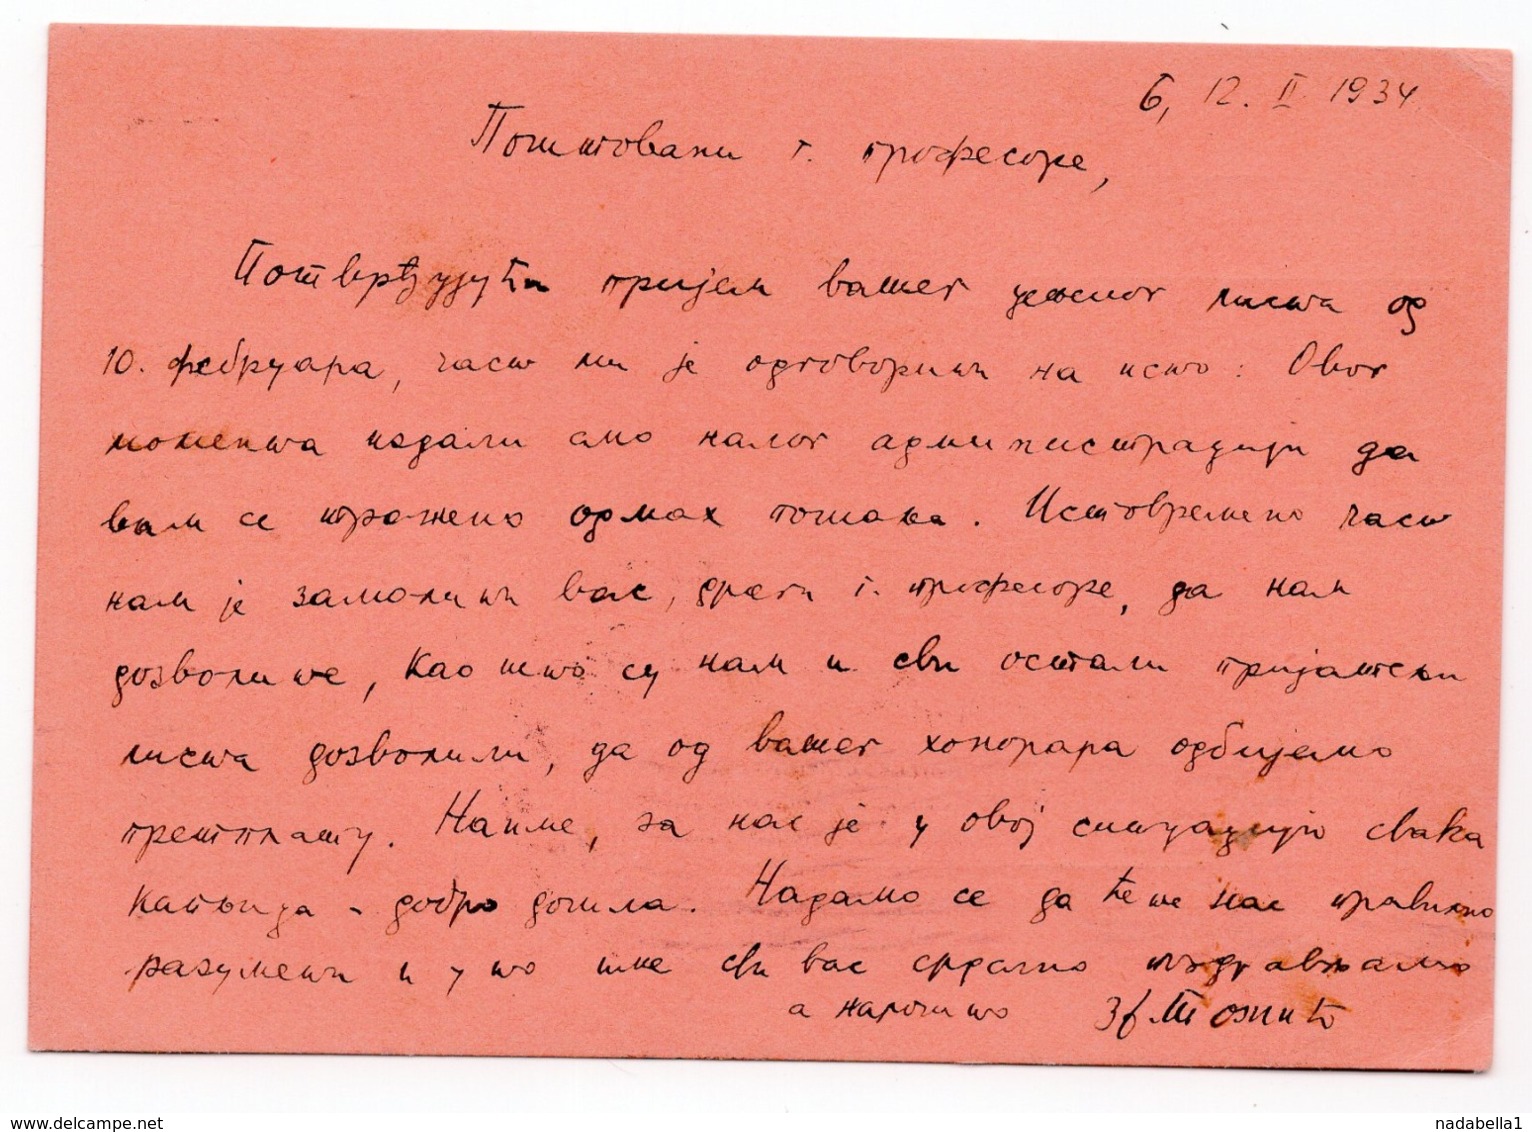 Б, 12. II 1934
Поштовани г. професоре,
Потврђујући пријем вашег ценог писма од
10. фебруара, част ми је одговорити на исто: Овог
момента издали смо налог администрацији да
вам се тражено одмах пошаље. Истовремено част
нам је замолити вас, драги г. професоре, да нам
дозволите, као што су нам и сви остали пријатељи
листа дозволили, да од вашег хонорара одбијемо
претплату. Наиме, за нас је у овој ситуацији свака
капљица - добро дошла. Надамо се да ћете нас правилно
разумети и у то име сви вас срдачно поздрављамо
а нарочито
nadabella1
delcampe.net